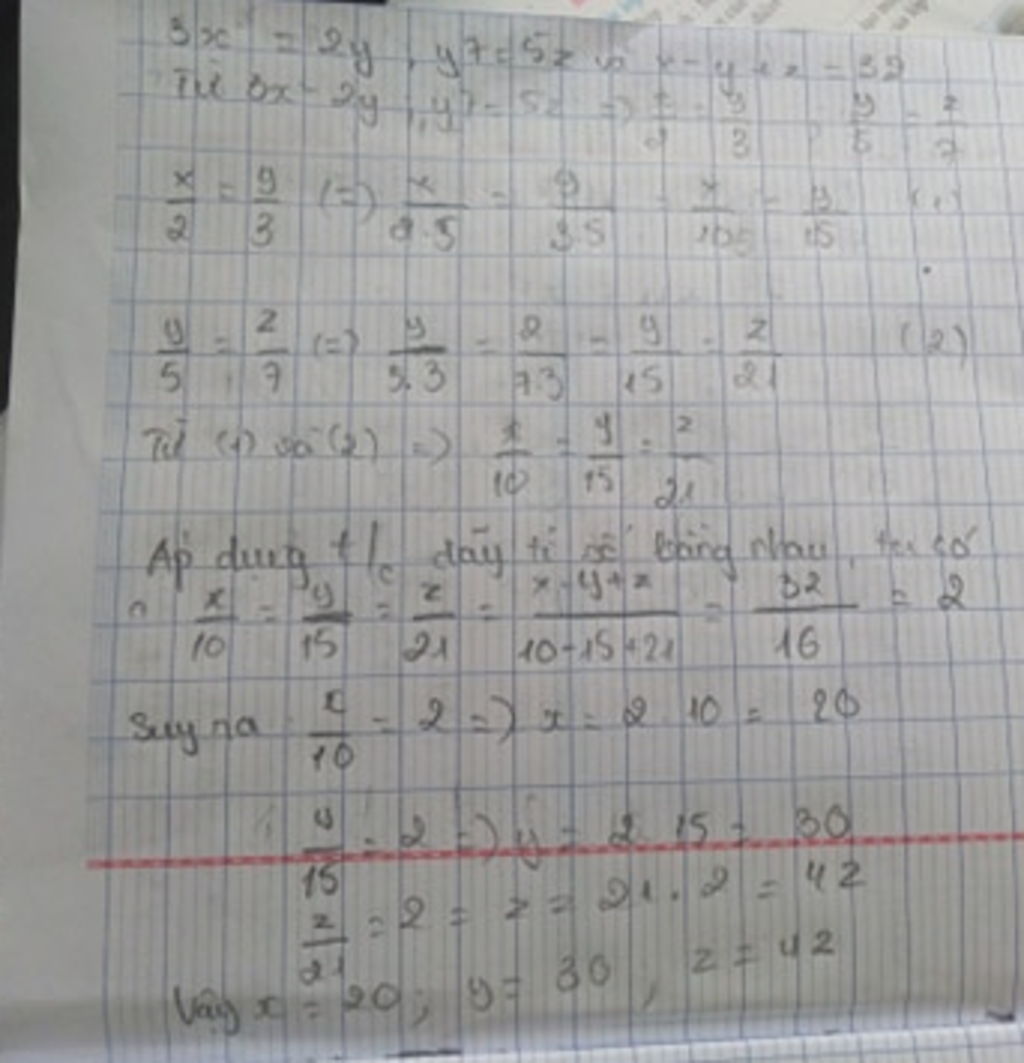 3x = 2y, y7 = 5z và x - y + z = 32
Từ 3x = 2y, y7 = 5z => x/2 = y/3, y/5 = z/7
x/2 = y/3 (=) x/2.5 = y/3.5 = x/10 = y/15 (1)
y/5 = z/7 (=) y/5.3 = z/7.3 = y/15 = z/21 (2)
Từ (1) và (2) => x/10 = y/15 = z/21
Áp dụng t/c dãy tỉ số bằng nhau, ta có
x/10 = y/15 = z/21 = x-y+z/10-15+21 = 32/16 = 2
Suy ra x/10 = 2 => x = 2 10 = 20
y/15 = 2 => y = 2 15 = 30
z/21 = 2 = z = 21.2 = 42
Vậy x = 20; y = 30, z = 42